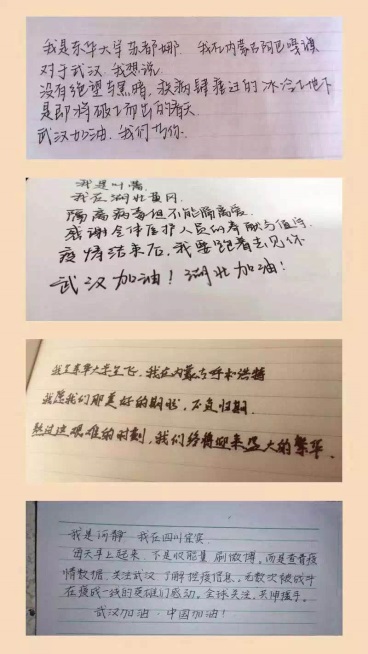 我是东华大学苏都娜 我在内蒙古阿巴嘎旗
对于武汉,我想说
没有绝望与黑暗,疾病肆虐过的冰冷之地下
是即将破土而出的春天
武汉加油,我们等你.
我是叶
我在湖北黄冈
隔离病毒但不能隔离爱.
感谢全体医护人员的奉献与值守
疫情结束后,我要跑着去见你
武汉加油!湖北加油!
我是东华大学王飞,我在内蒙古呼和浩特
我愿我们那美好的期盼,不负归期.
熬过这艰难的时刻,我们终将迎来盛大的繁华.
我是 静 我在四川宜宾
每天早上起来,不是收能量 刷微博,而是查看疫
情数据,关注武汉,了解控疫信息,无数次被战斗
在疫战一线的英雄们感动。全球关注,共抻援手。
武汉加油,中国加油!